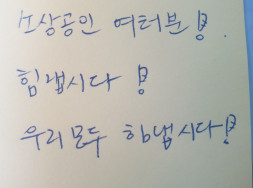 소상공인 여러분!.
힘냅시다!
우리 모두 힘냅시다!